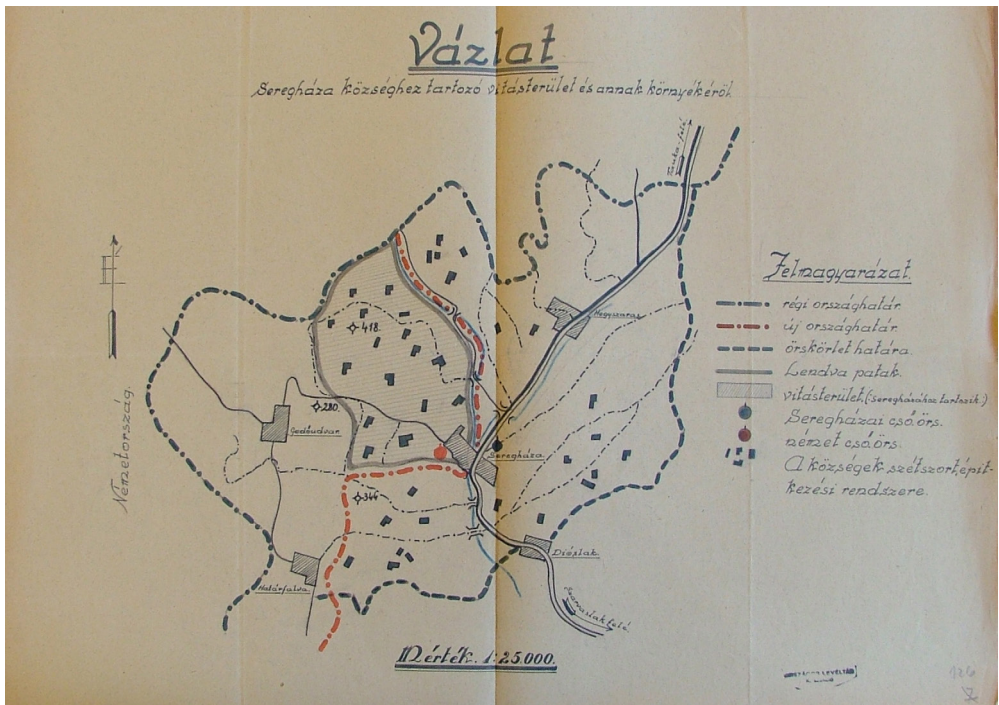 Vázlat
Seregháza községhez tartozó vitásterület és annak környékéről.
felé
Németország.
418.
280.
346
Hegyszoros
Gedoudvar
Seregháza
Határfalva
Dióslak
felé
Jelmagyarázat.
régi országhatár.
új országhatár.
őrskörlet határa.
Lendva patak.
vitásterület, (: Seregházához tartozik.:)
Seregházai cső. örs.
német cső. örs.
A községek szétszort épít-
kezési rendszere.
Mérték. 1:25.000.
LEVÉLTÁR
126